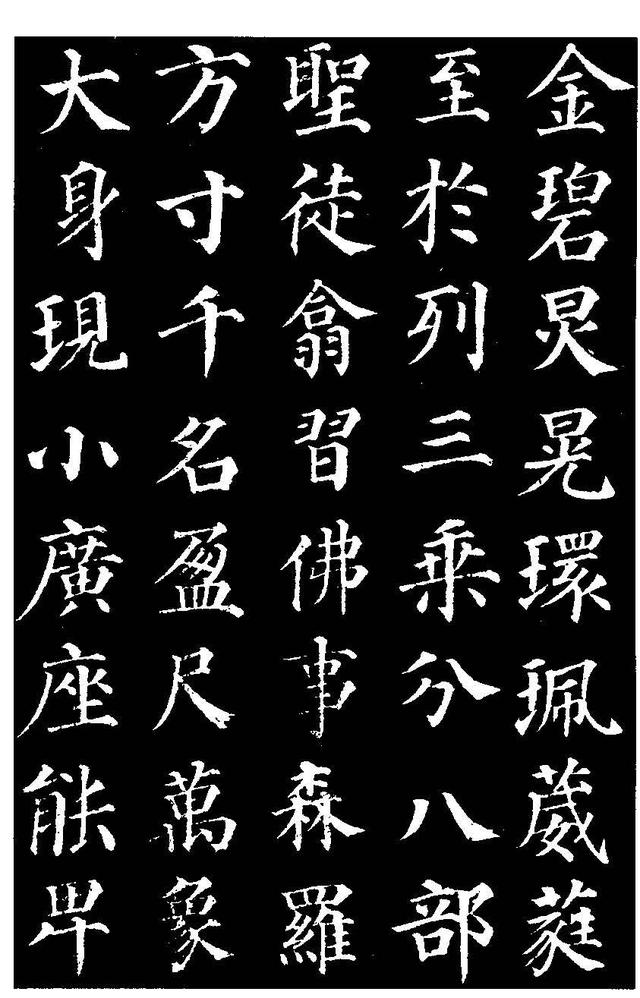 金碧炅晃環珮葳蕤
至於列三乘分八部
聖徒翕習佛事森羅
方寸千名盈尺萬象
大身現小廣座能卑